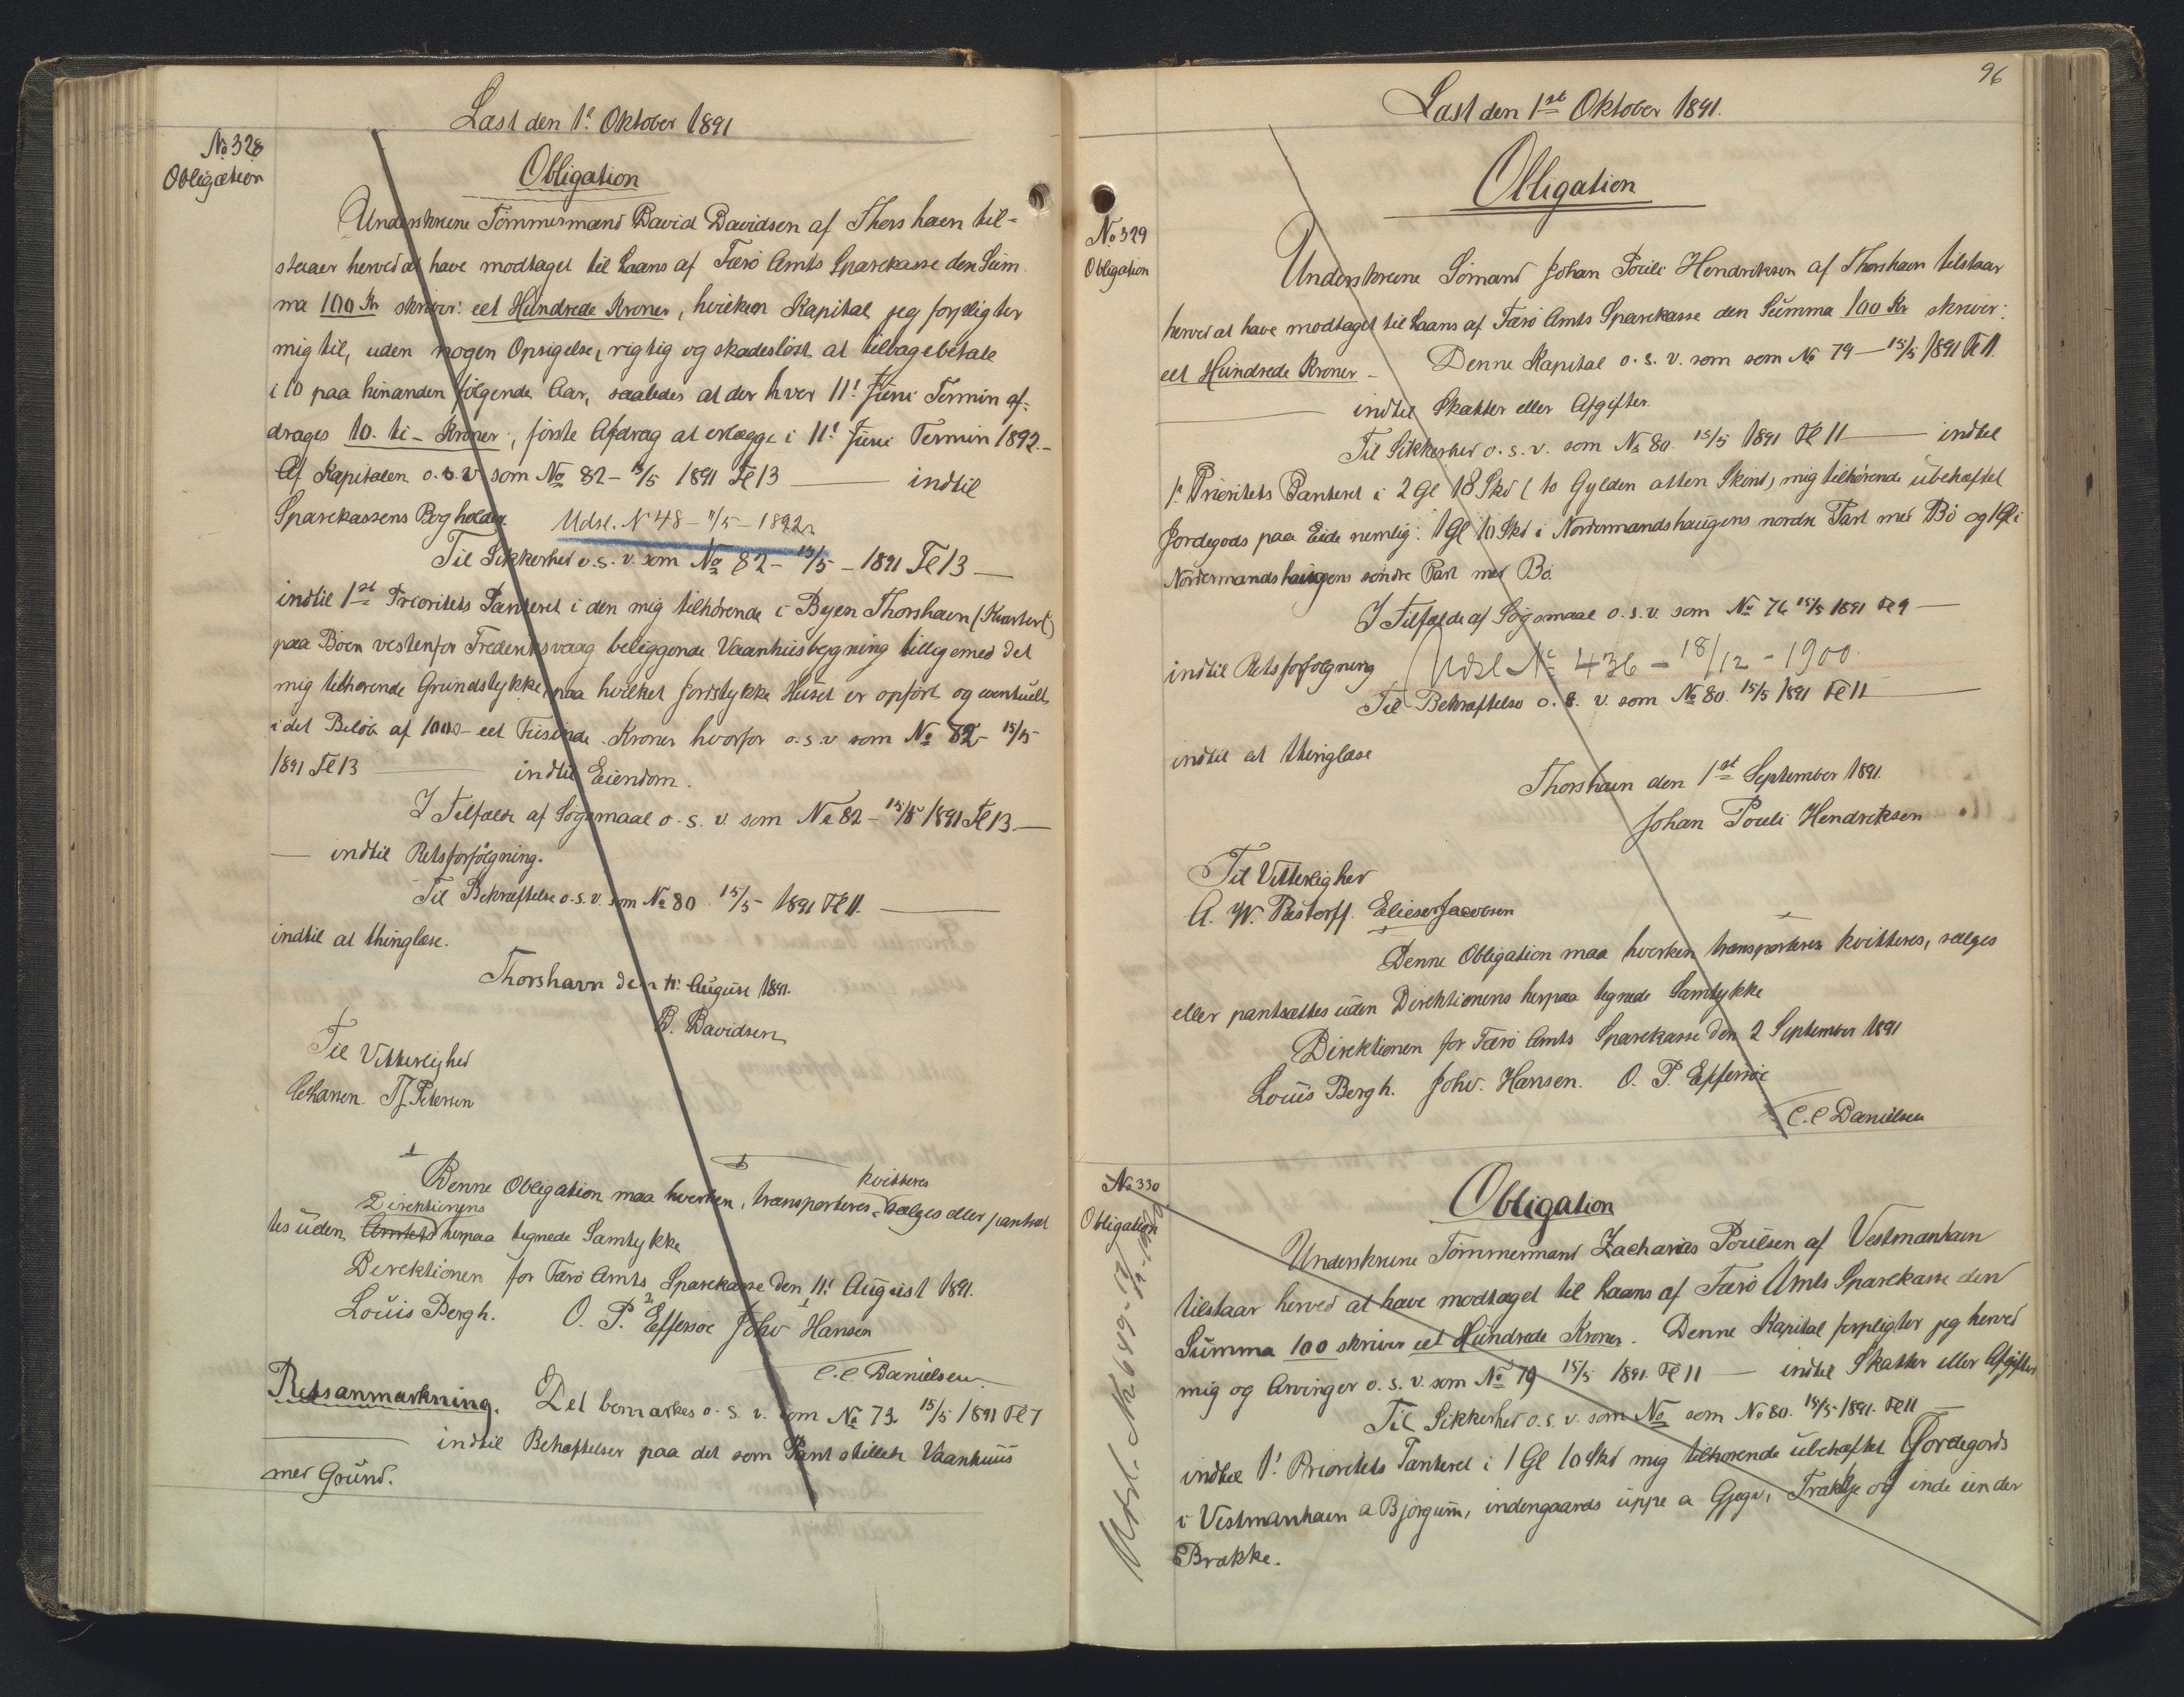 Læst den 1' Oktober 1891
No 328
Obligation
Obligation
Underskrevne Tömmermand David Davidsen af Thorshavn til-
staaer herved at have modtaget til Laans af Færö Amts Sparekasse den Sum
ma 100 Kr skriver: eet Hundrede Kroner, hvilken Kapital jeg forpligter
mig til, uden nogen Opsigelse, rigtig og skadeslöst at tilbagebetale
i 10 paa hinanden fölgende Aar, saaledes at der hver 11' Juni Termin af-
drages 10. ti - Kroner, förste Afdrag at erlægge i 11' Juni Termin 1892.-
Af Kapitalen o.s.v. som No 82 - 15/5 1891 Fl 13 — indtil
Sparekassens Bogholder. Udsl. N 48 - 11/5 - 1892
Til Sikkerhed o.s.v. som No 82 - 15/5 - 1891 Fl 13 —
indtil 1st Prioritets Panteret i den mig tilhörende i Byen Thorshavn (Kvarteret)
paa Böen vestenfor Frederiksvaag beliggende Vaanhusbygning tilligemed det
mig tilhörende Grundstykke, paa hvilket Jordstykke Huset er opfört og eventuelt
i det Belöb af 1000 - eet Tusinde Kroner hvorfor o.s.v som No 82 - 15/5
1891 Fl 13 — indtil Eiendom.
I Tilfælde af Sögsmaal o.s.v som No 82 - 15/5 1891 Fl 13 —
— indtil Retsforfölgning.
Til Bekræftelse o.s.v. som No 80 15/5 1891 Fl 11. —
indtil at thinglæse.
Thorshavn den 11' August 1891.
D. Davidsen
Til Vitterlighed
Petersen
kvitteres
Denne Obligation maa hverken, transporteres, sælges eller pantsæt
Direktionens
tes uden Amtets herpaa tegnede Samtykke
Direktionen for Færö Amts Sparekasse den 11' August 1891.
Louis Bergh. O. P. Effersöe Johv Hansen
C.C. Danielsen
Retsanmærkning. Det bemærkes o.s.v. som No 73 15/5 1891 Fl 7
— indtil Behæftelser paa det som Pant stillede Vaanhuus
med Grund.
96
Læst den 1st Oktober 1891.
Obligation
No 329
Obligation
Underskrevne Sömand Johan Pouli Hendriksen af Thorshavn tilstaar
herved at have modtaget til Laans af Færö Amts Sparekasse den Summa 100 Kr skriver:
eet Hundrede Kroner - Denne Kapital o.s.v. som som No 79 - 15/5 1891 Fl 11.
— indtil Skatter eller Afgifter.
Til Sikkerhed o.s.v. som No 80. 15/5 1891 Fl 11 — indtil
1' Prioritets Panteret i 2 Gl 18 Skd (to Gylden atten Skind) mig tilhörende ubehæftet
Jordegods paa Eide nemlig: 1 Gl 10 Skd i Nordermandshaugens nordre Part med Bö og 1 Gl i
Nordermandshaugens söndre Part med Bö.
I Tilfælde af Sögsmaal o.s.v. som No 76 15/5 1891 Fl 9 —
indtil Retsforfölgning Udsl No 436 - 18/12 - 1900
Til Bekræftelse o.s.v. som No 80. 15/5 1891 Fl 11 —
indtil at thinglæse
Thorshavn den 1st September 1891.
Johan Pouli Hendriksen
Til Vitterlighed
A. W. Restorff. Elieser Jacobsen
Denne Obligation maa hverken transporteres kvitteres, sælges
eller pantsættes uden Direktionens herpaa tegnede Samtykke
Direktionen for Færö Amts Sparekasse den 2 September 1891
Louis Bergh. Johv. Hansen. O. P. Effersöe
C.C Danielsen
No 330
Obligation
Obligation
Underskrevne Tömmermand Zacharias Poulsen af Vestmanhavn
tilstaar herved at have modtaget til Laans af Færö Amts Sparekasse den
Summa 100 skriver eet Hundrede Kroner. Denne Kapital forpligter jeg herved
mig og Arvinger o.s.v. som No 79 15/5 1891. Fl 11 — indtil Skatter eller Afgifter
Til Sikkerhed o.s.v. som No som No 80. 15/5 1891. Fl 11 —
indtil 1' Prioritets Panteret i 1 Gl 10 Skd mig tilhörende ubehæftet Jordegods
i Vestmanhavn a Bjorgum, indengaards uppe a Gjegv, Trakkje og inde under
Brække.
Udsl. No 649-